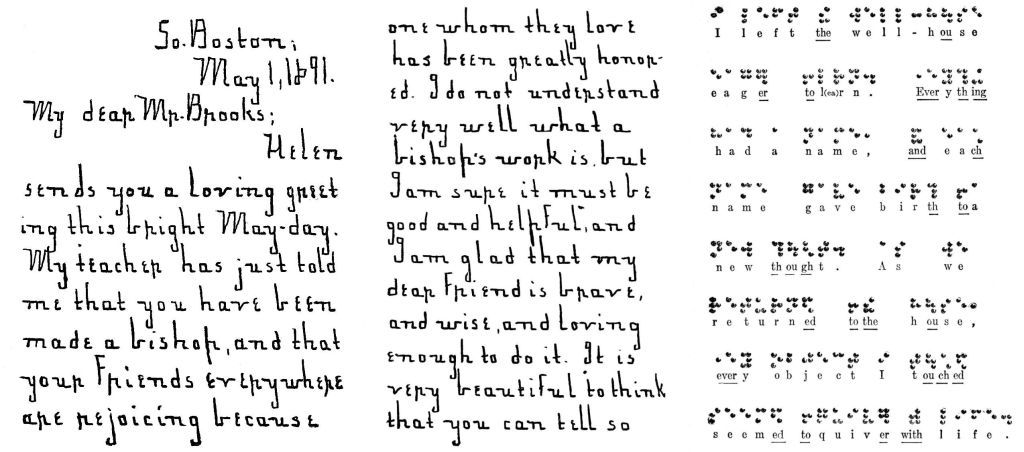 So. Boston,
May 1, 1891.
My dear Mr. Brooks;
Helen
sends you a loving greet
ing this bright May-day.
My teacher has just told
me that you have been
made a bishop, and that
your friends everywhere
are rejoicing because
one whom they love
has been greatly honor-
ed. I do not understand
very well what a
bishop's work is, but
I am sure it must be
good and helpful, and
I am glad that my
dear friend is brave,
and wise, and loving
enough to do it. It is
very beautiful to think
that you can tell so
I left the well-house
eager to l(ea)rn. Every thing
had a name, and each
name gave birth to a
new thought. As we
returned to the house,
every object I touched
seemed to quiver with life.